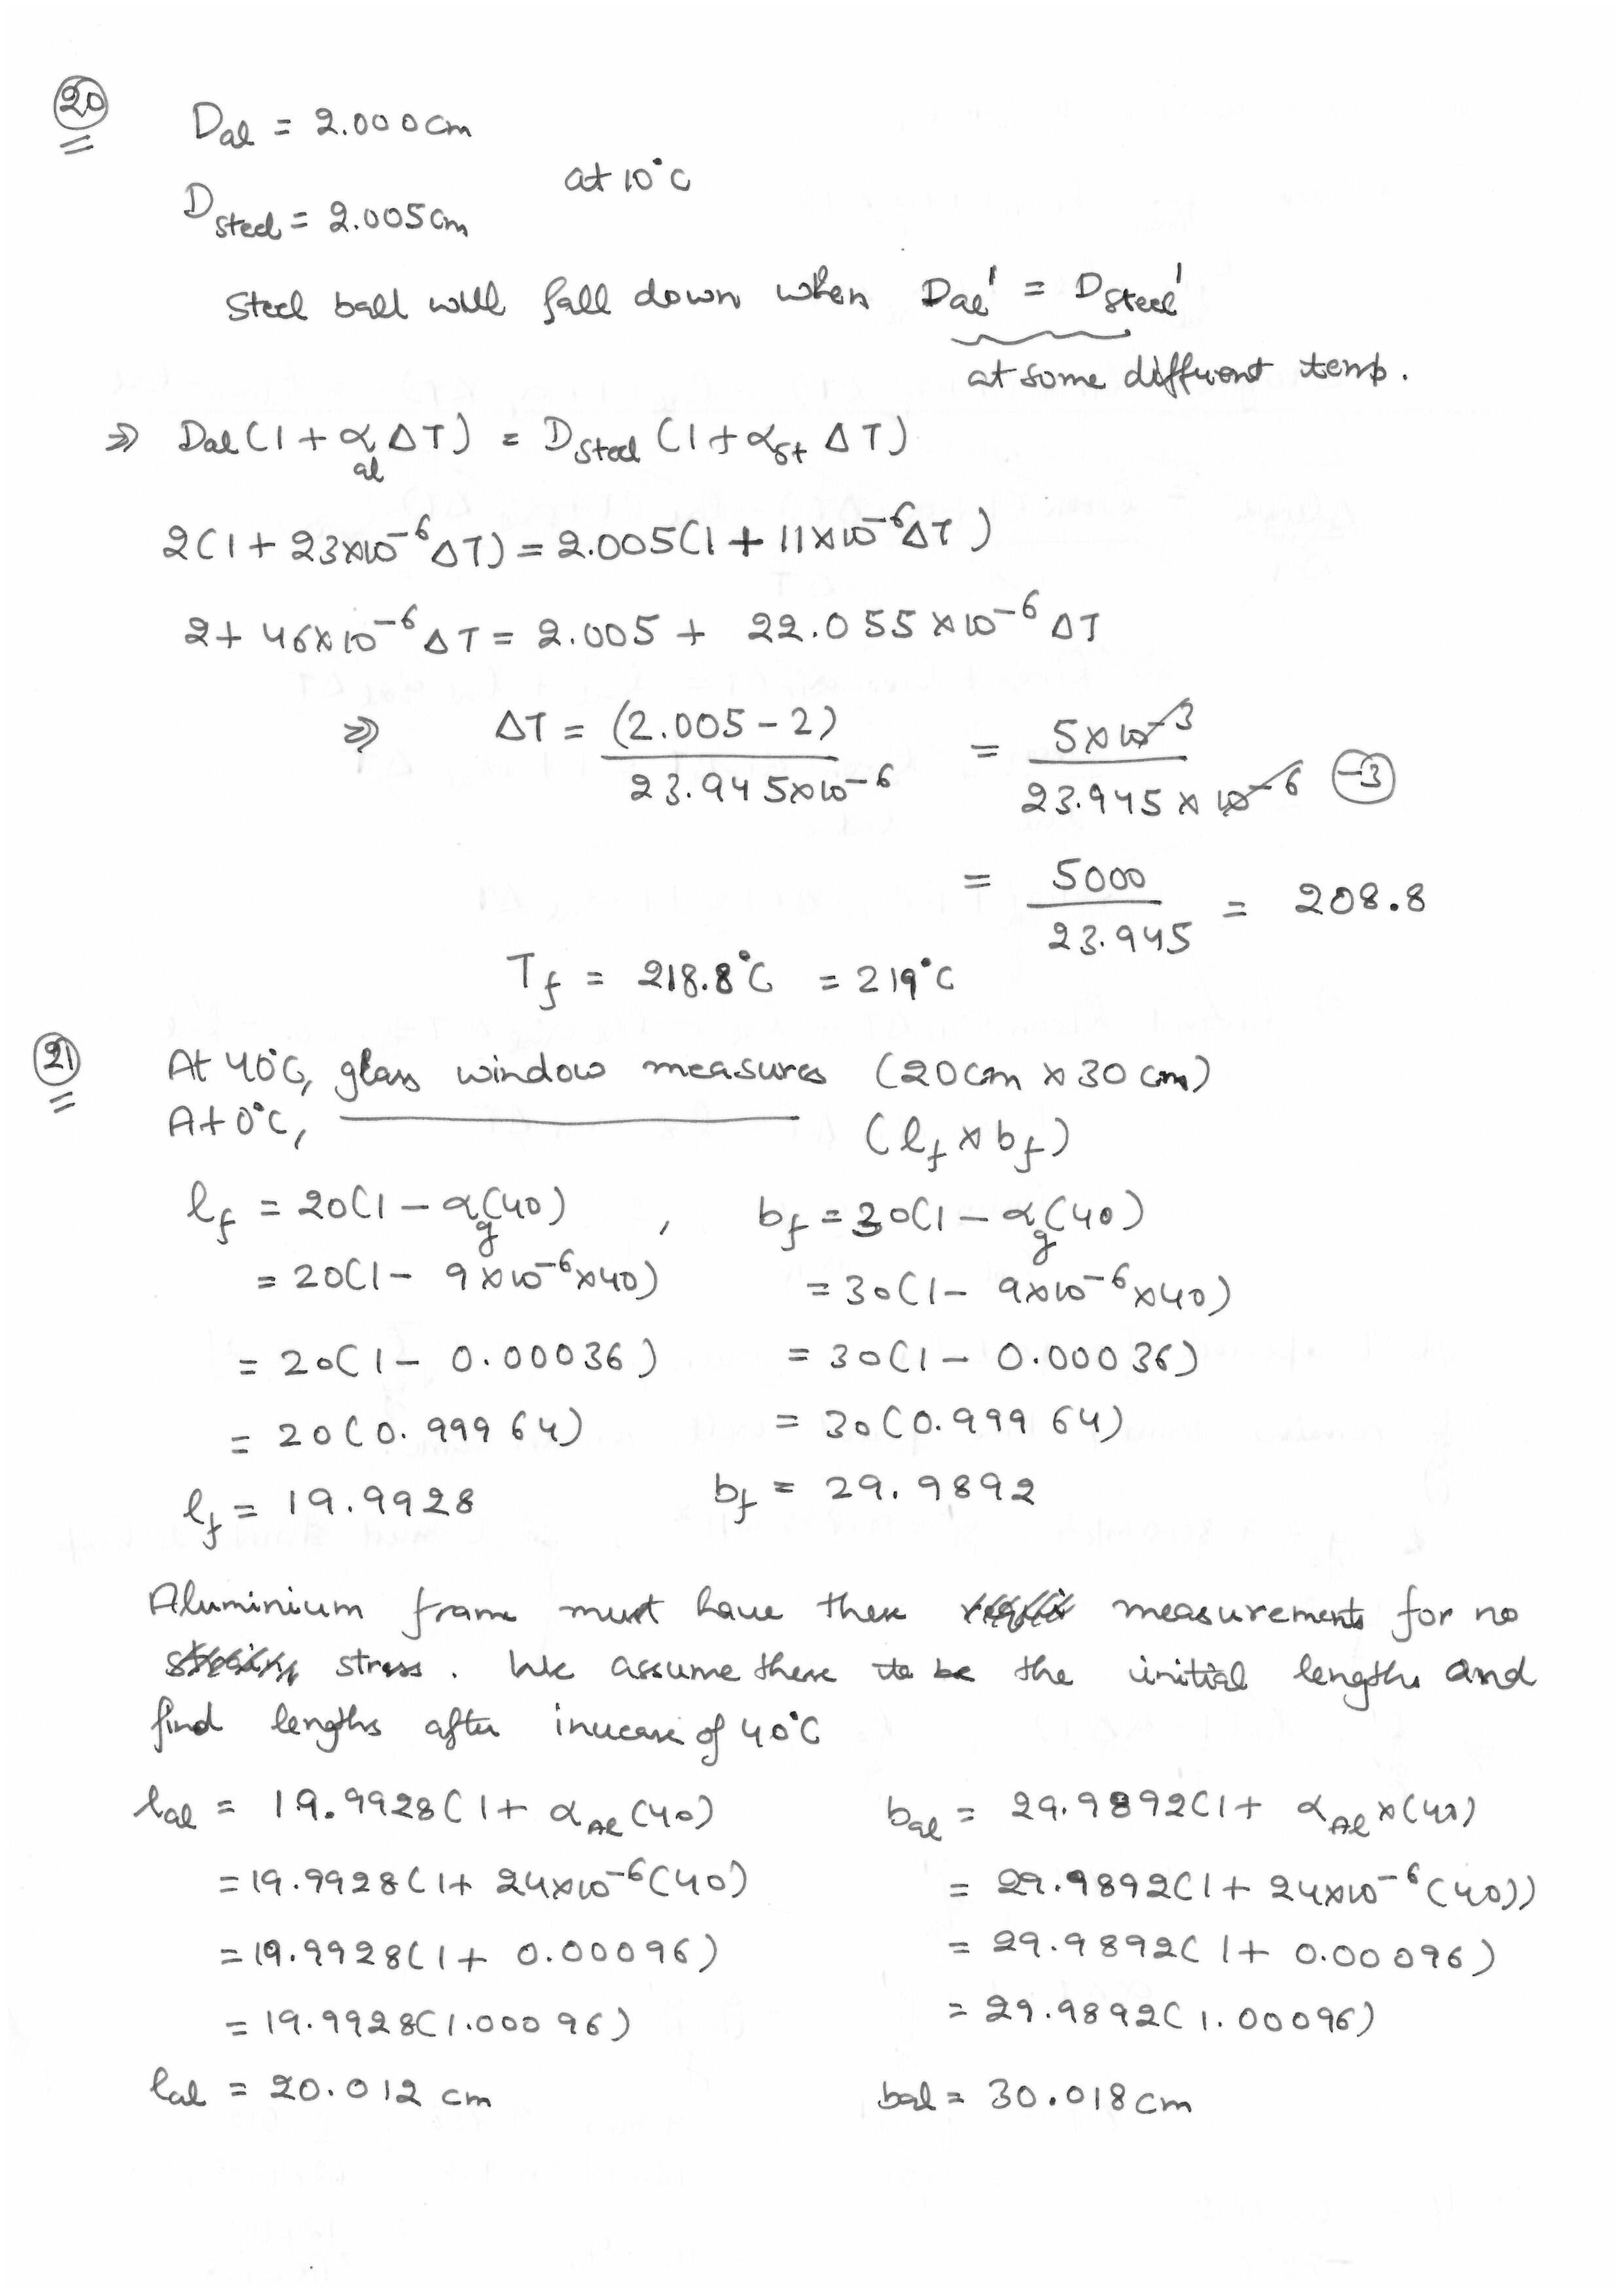 20
D_al = 2.000 cm
at 10°C
D_steel = 2.005 cm
Steel ball will fall down when D_al' = D_steel'
at some different temp.
⇒ D_al (1 + α_al ΔT) = D_steel (1 + α_st ΔT)
2(1 + 23×10^-6 ΔT) = 2.005(1 + 11×10^-6 ΔT)
2 + 46×10^-6 ΔT = 2.005 + 22.055×10^-6 ΔT
⇒ ΔT = (2.005 - 2) / 23.945×10^-6 = 5×10^-3 / 23.945×10^-6 (-3)
= 5000 / 23.945 = 208.8
T_f = 218.8°C = 219°C
21
At 40°C, glass window measures (20cm × 30cm)
At 0°C, ———— (l_f × b_f)
l_f = 20(1 - α_g(40) , b_f = 30(1 - α_g(40)
= 20(1 - 9×10^-6×40) = 30(1 - 9×10^-6×40)
= 20(1 - 0.00036) = 30(1 - 0.00036)
= 20(0.99964) = 30(0.99964)
l_f = 19.9928 b_f = 29.9892
Aluminium frame must have these measurements for no
stress. We assume these to be the initial lengths and
find lengths after increase of 40°C
l_al = 19.9928(1 + α_Al(40) b_al = 29.9892(1 + α_Al×(40)
= 19.9928(1 + 24×10^-6(40) = 29.9892(1 + 24×10^-6(40))
= 19.9928(1 + 0.00096) = 29.9892(1 + 0.00096)
= 19.9928(1.00096) = 29.9892(1.00096)
l_al = 20.012 cm b_al = 30.018 cm